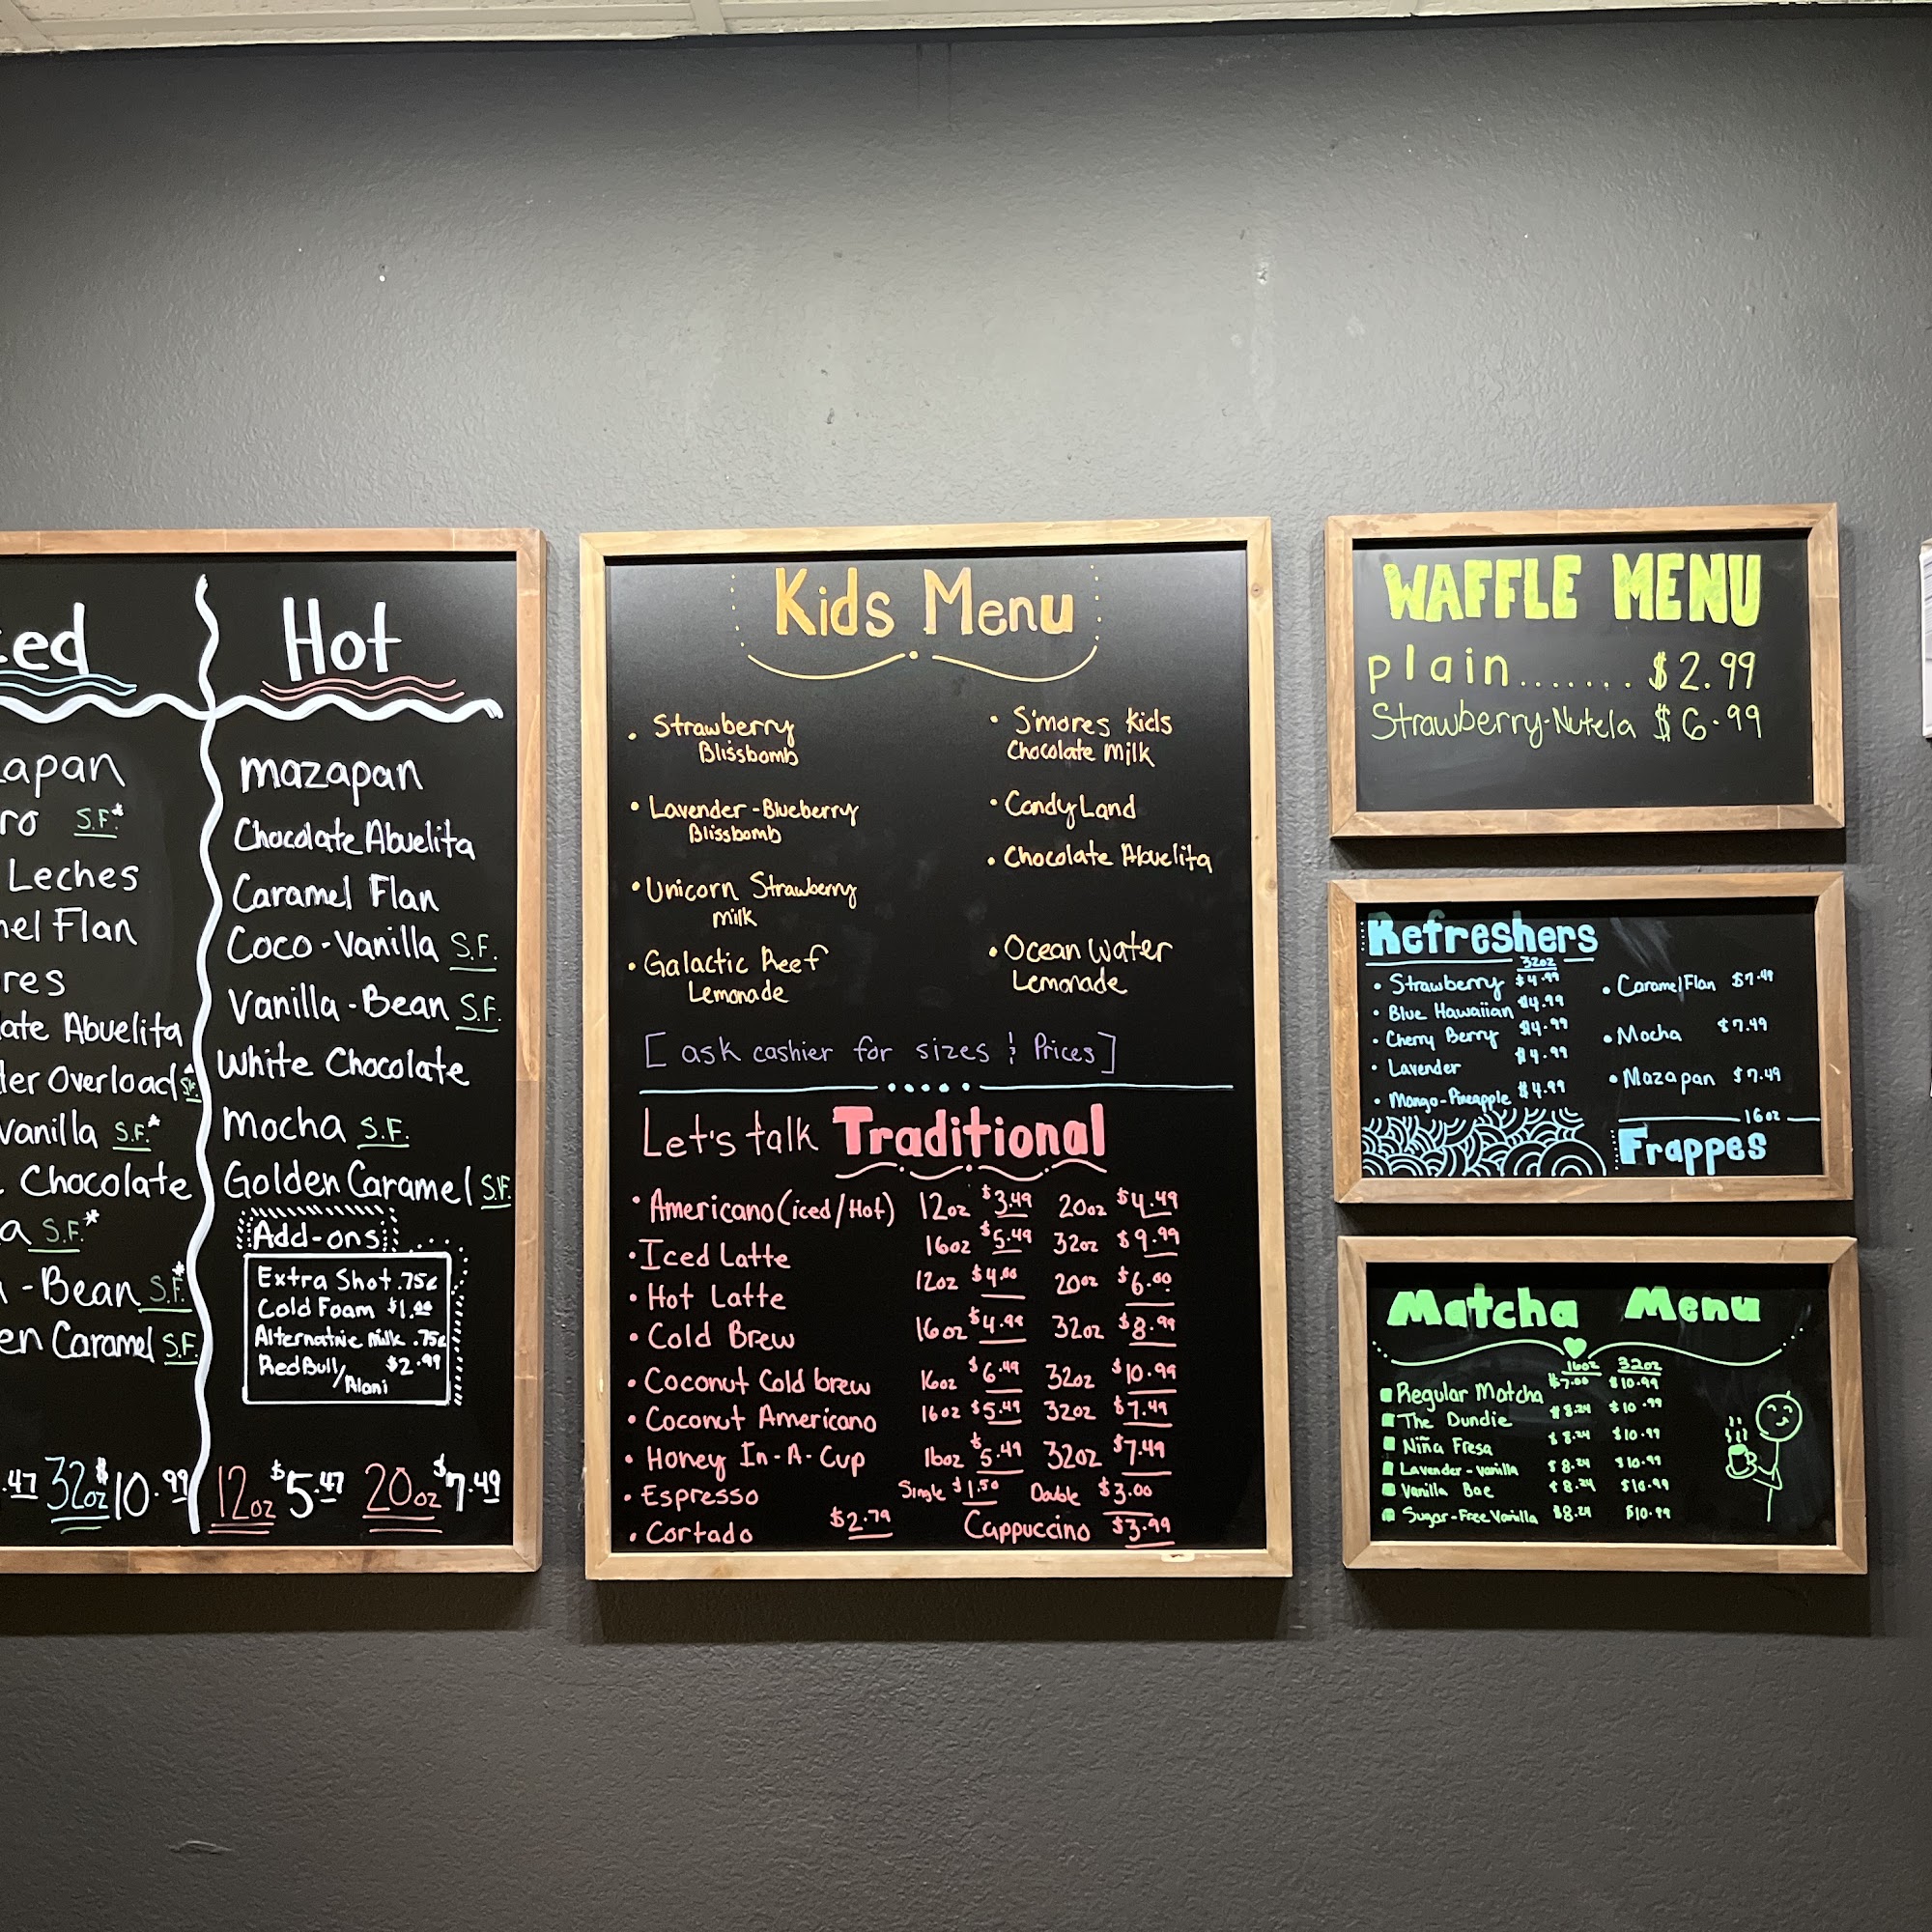 ed
apan
ro S.F.*
Leches
nel Flan
res
ate Abuelita
der Overload S.F.*
vanilla S.F.*
Chocolate
a S.F.*
-Bean S.F.*
en Caramel S.F.
.47 32oz $10.99
Hot
mazapan
Chocolate Abuelita
Caramel Flan
Coco-Vanilla S.F.
Vanilla-Bean S.F.
White Chocolate
Mocha S.F.
Golden Caramel S.F.
Add-ons
Extra Shot .75¢
Cold Foam $1.00
Alternative Milk .75¢
RedBull/ $2.99
Alani
12oz $5.47 20oz $7.49
Kids Menu
• Strawberry
Blissbomb
• Lavender-Blueberry
Blissbomb
• Unicorn Strawberry
milk
• Galactic Reef
Lemonade
• S'mores Kids
Chocolate Milk
• CandyLand
• Chocolate Abuelita
• Ocean Water
Lemonade
[ask cashier for sizes & Prices]
Let's talk Traditional
• Americano (iced/Hot) 12oz $3.49 20oz $4.49
• Iced Latte 16oz $5.49 32oz $9.99
• Hot Latte 12oz $4.00 20oz $6.00
• Cold Brew 16oz $4.99 32oz $8.99
• Coconut Cold brew 16oz $6.49 32oz $10.99
• Coconut Americano 16oz $5.49 32oz $7.49
• Honey In-A-Cup 16oz $5.49 32oz $7.49
• Espresso Single $1.50 Double $3.00
• Cortado $2.79 Cappuccino $3.99
WAFFLE MENU
plain....... $2.99
Strawberry-Nutela $6.99
Refreshers
32oz
• Strawberry $4.99
• Blue Hawaiian $4.99
• Cherry Berry $4.99
• Lavender $4.99
• Mango-Pineapple $4.99
• Caramel Flan $7.49
• Mocha $7.49
• Mazapan $7.49
16oz
Frappes
Matcha Menu
16oz 32oz
Regular Matcha $7.00 $10.99
The Dundie $8.24 $10.99
Niña Fresa $8.24 $10.99
Lavender-Vanilla $8.24 $10.99
Vanilla Bae $8.24 $10.99
Sugar-Free Vanilla $8.24 $10.99